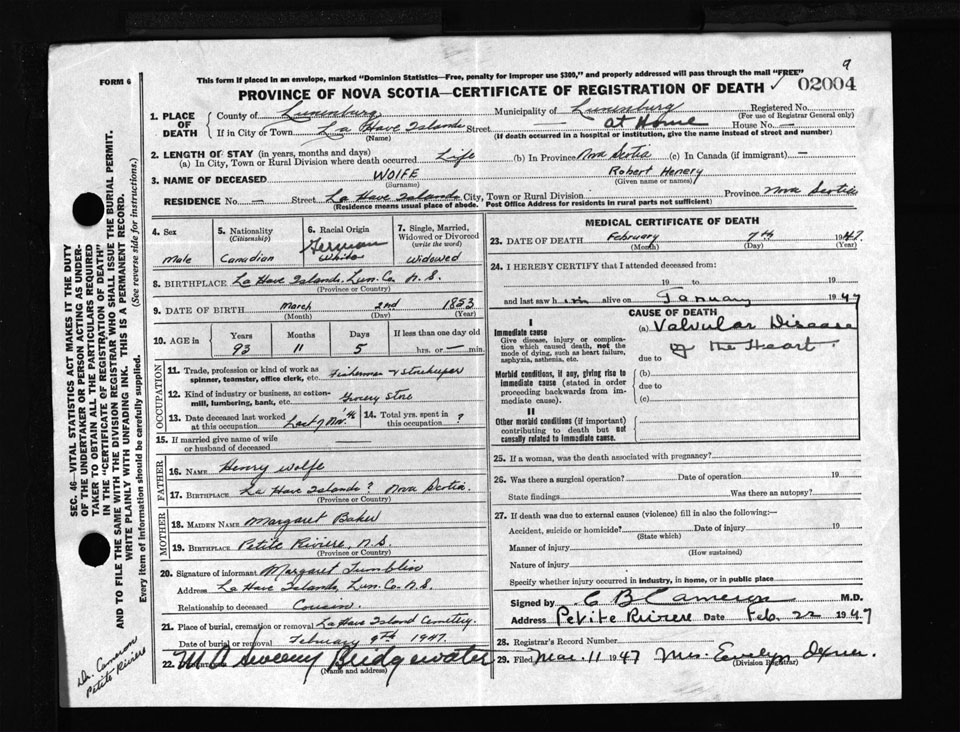 9
FORM 6
This form if placed in an envelope, marked "Dominion Statistics—Free, penalty for improper use $300," and properly addressed will pass through the mail "FREE"
PROVINCE OF NOVA SCOTIA—CERTIFICATE OF REGISTRATION OF DEATH 02004
SEC. 46—VITAL STATISTICS ACT MAKES IT THE DUTY
OF THE UNDERTAKER OR PERSON ACTING AS UNDER-
TAKER TO OBTAIN ALL THE PARTICULARS REQUIRED
IN THE "CERTIFICATE OF REGISTRATION OF DEATH"
AND TO FILE THE SAME WITH THE DIVISION REGISTRAR WHO SHALL ISSUE THE BURIAL PERMIT.
WRITE PLAINLY WITH UNFADING INK. THIS IS A PERMANENT RECORD.
Every item of Information should be carefully supplied. (See reverse side for instructions.)
1. PLACE OF DEATH
County of Lunenburg Municipality of Lunenburg Registered No.
(For use of Registrar General only)
If in City or Town La Have Islands Street — at Home House No. —
(Name) (If death occurred in a hospital or institution, give the name instead of street and number)
2. LENGTH OF STAY (in years, months and days)
(a) In City, Town or Rural Division where death occurred Life (b) In Province Nova Scotia (c) In Canada (if immigrant) —
3. NAME OF DECEASED WOLFE Robert Henery
(Surname) (Given name or names)
RESIDENCE No. — Street La Have Islands City, Town or Rural Division Province Nova Scotia
(Residence means usual place of abode. Post Office Address for residents in rural parts not sufficient)
4. Sex
Male
5. Nationality
(Citizenship)
Canadian
6. Racial Origin
German
White
7. Single, Married,
Widowed or Divorced
(write the word)
Widowed
8. BIRTHPLACE La Have Islands, Lun. Co. N.S.
(Province or Country)
9. DATE OF BIRTH March 2nd 1853
(Month) (Day) (Year)
10. AGE in Years Months Days If less than one day old
93 11 5 hrs. or — min.
OCCUPATION
11. Trade, profession or kind of work as
spinner, teamster, office clerk, etc. Fisherman & storekeeper
12. Kind of industry or business, as cotton-
mill, lumbering, bank, etc. Grocery Store
13. Date deceased last worked
at this occupation Last of Nov. '46
14. Total yrs. spent in
this occupation ?
15. If married give name of wife
or husband of deceased
FATHER
16. NAME Henry Wolfe
17. BIRTHPLACE La Have Islands? Nova Scotia
(Province or Country)
MOTHER
18. MAIDEN NAME Margaret Baker
19. BIRTHPLACE Petite Riviere, N.S.
(Province or Country)
20. Signature of informant Margaret Tumblin
Address La Have Islands, Lun. Co. N.S.
Relationship to deceased Cousin.
21. Place of burial, cremation or removal La Have Island Cemetery.
Date of burial or removal February 9th 1947.
22. W A Sweeny Bridgewater
(Name and address)
MEDICAL CERTIFICATE OF DEATH
23. DATE OF DEATH February 7th 1947
(Month) (Day) (Year)
24. I HEREBY CERTIFY that I attended deceased from:
19 to 19
and last saw him alive on January 1947
CAUSE OF DEATH
I
Immediate cause
Give disease, injury or complica-
tion which caused death, not the
mode of dying, such as heart failure,
asphyxia, asthenia, etc.
(a) Valvular Disease
of the Heart.
due to
Morbid conditions, if any, giving rise to
immediate cause (stated in order
proceeding backwards from im-
mediate cause).
(b)
due to
(c)
II
Other morbid conditions (if important)
contributing to death but not
causally related to immediate cause.
25. If a woman, was the death associated with pregnancy?
26. Was there a surgical operation? Date of operation 19
State findings Was there an autopsy?
27. If death was due to external causes (violence) fill in also the following:—
Accident, suicide or homicide? Date of injury 19
(State which)
Manner of injury
(How sustained)
Nature of injury
Specify whether injury occurred in industry, in home, or in public place
Signed by C B Cameron M.D.
Address Petite Riviere Date Feb. 22 1947
28. Registrar's Record Number
29. Filed Mar. 11 1947 Mrs. Evelyn
(Division Registrar)
Dr. Cameron
Petite Riviere